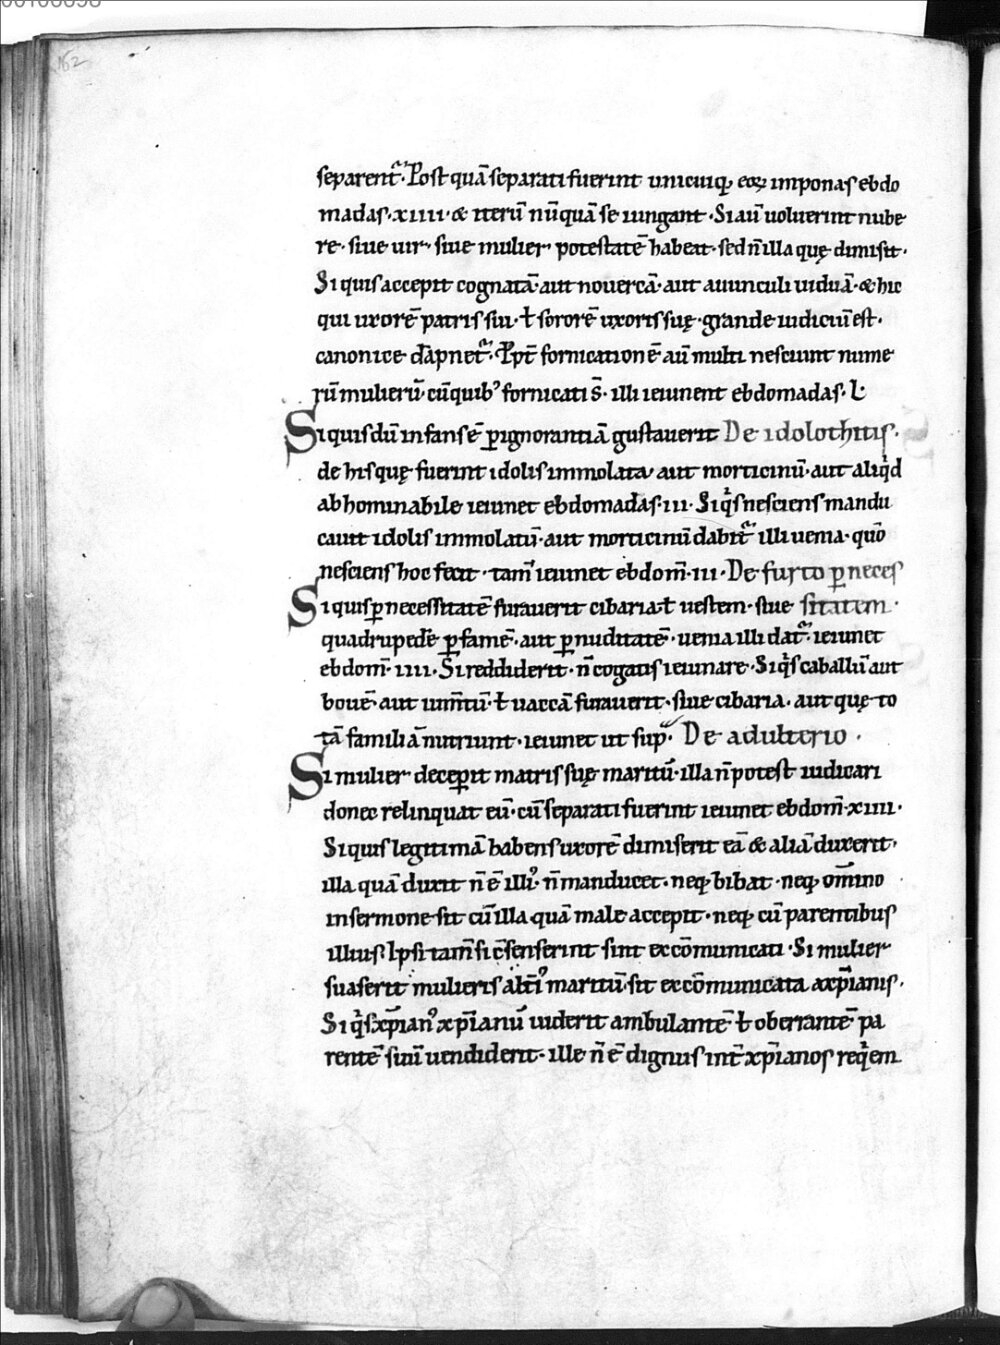 162
separent᷑. Post quā separati fuerint unicuiq; eoꝝ imponas ebdo
madas. xiiii. & iterū nūquā se iungant. Si aū uoluerint nube
re. siue uir. siue mulier potestatē habeat. sed n̄ illa quę dimisit.
Si quis accepit cognatā. aut nouercā. aut auunculi uiduā. & hic
qui uxorē patris sui. ł sororē uxoris suę. grande iudiciū est.
canonice dāpnet᷑. Ppt̄ fornicationē aū multi nesciunt nume
rū mulierū. cū quibꝰ fornicati s̄. illi ieiunent ebdomadas. L
Si quis dū infans ē ꝑ ignorantiā gustauerit De idolothitis.
de his quę fuerint idolis immolata. aut morticinū. aut aliqͥd
abhominabile ieiunet ebdomadas. iii. Si qͥs nesciens mandu
cauit idolis immolatū. aut morticinū dabit᷑ illi uenia. quō
nesciens hoc fecit. tam̄ ieiunet ebdom̄. iii. De furto ꝑ neces
Si quis ꝑ necessitatē furauerit cibaria. ł uestem. siue sitatem.
quadrupedē ꝑ famē. aut ꝑ nuditatē. uenia illi dat᷑. ieiunet
ebdom̄. iiii. Si reddiderit. n̄ cogatis ieiunare. Si qͥs caballū aut
bouē. aut ium̄tū. ł uaccā furauerit. siue cibaria. aut quę to
tā familiā nutriunt. ieiunet ut sup᷑. De adulterio.
Si mulier deceperit matris suę maritū. illa n̄ potest iudicari
donec relinquat eū. cū separati fuerint ieiunet ebdom̄. xiiii.
Si quis legitimā habens uxorē dimiserit eā & aliā duxerit.
illa quā duxit n̄ ē illiꝰ. n̄ manducet. neq; bibat. neq; om̄ino
in sermone sit cū illa quā male accepit. neq; cū parentibus
illius. Ipsi tam̄ si c̄senserint sint excōmunicati. Si mulier
suaserit mulieris alt̄iꝰ maritū. sit excōmunicata a xp̄ianis.
Si qͥs xp̄ianꝰ xp̄ianū uiderit ambulantē. ł oberrantē. pa
rentē suū uendiderit. ille n̄ ē dignus int̄ xp̄ianos reqͥem